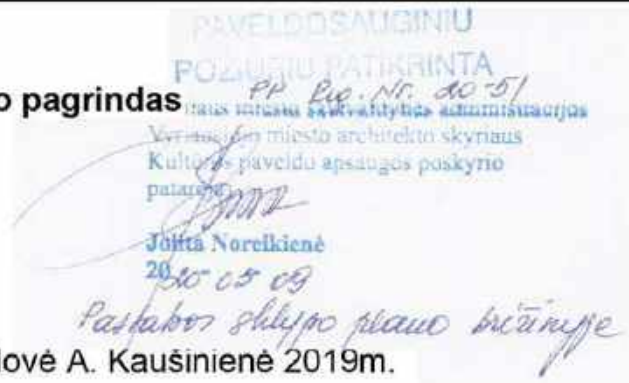 PAVELDOSAUGINIU
POŽIŪRIU PATIKRINTA
o pagrindas
PP Reg. Nr. 20-51
miesto savivaldybės administracijos
Vyriausiojo miesto architekto skyriaus
Kultūros paveldo apsaugos poskyrio
patarėja
Jolita Noreikienė
2020 05 09
Pastabos sklypo plano brėžinyje
lovė A. Kaušinienė 2019m.